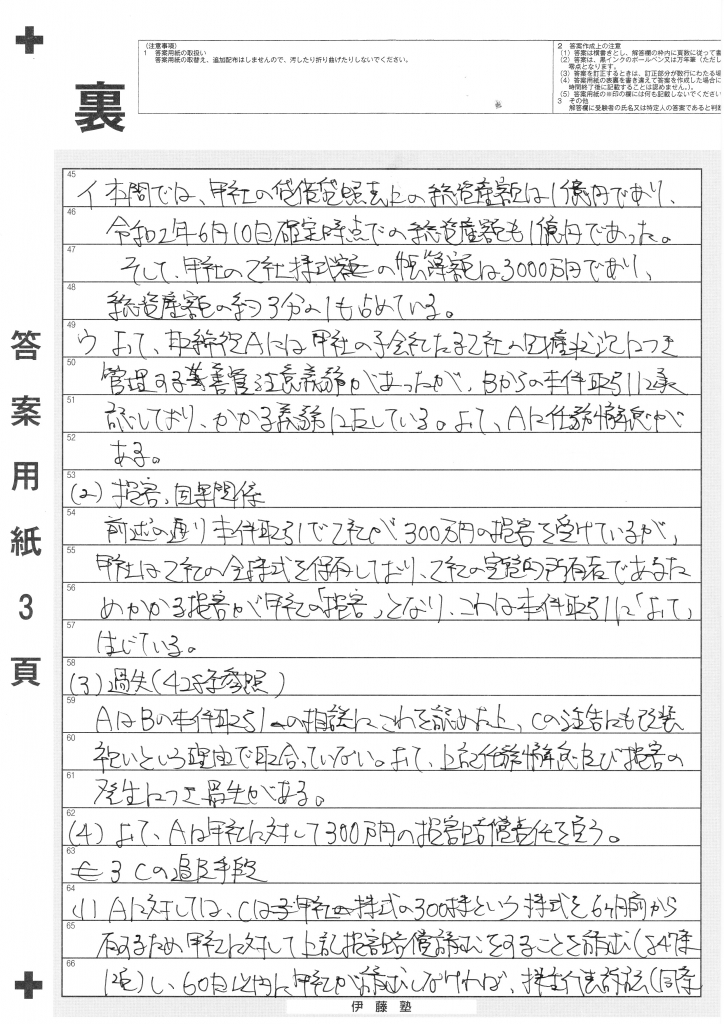 （注意事項）
1 答案用紙の取扱い
答案用紙の取替え、追加配布はしませんので、汚したり折り曲げたりしないでください。
2 答案作成上の注意
(1) 答案は横書きとし、解答欄の枠内に頁数に従って書
(2) 答案は、黒インクのボールペン又は万年筆（ただし
零点となります。
(3) 答案を訂正するときは、訂正部分が数行にわたる場
(4) 答案用紙の表裏を書き違えて答案を作成した場合に
時間終了後に記載することは認めません。）。
(5) 答案用紙の※印の欄には何も記載しないでください
3 その他
解答欄に受験者の氏名又は特定人の答案であると判断
裏
答案用紙3頁
45 イ 本問では、甲社の貸借貸照表上の総資産額は1億円であり、
46 令和2年6月10日確定時点での総資産額も1億円であった。
47 そして、甲社の乙社株式の帳簿額は3000万円であり、
48 総資産額の約3分の1も占めている。
49 ウ よって、取締役Aには甲社の子会社たる乙社の財産状況につき
50 管理する善管注意義務があったが、Bからの本件取引に承
51 認しており、かかる義務に反している。よって、Aに任務懈怠が
52 ある。
53 (2) 損害、因果関係
54 前述の通り本件取引で乙社が300万円の損害を受けているが、
55 甲社は乙社の全株式を保有しており、乙社の実質的所有者であるた
56 めかかる損害が甲社の「損害」となり、これは本件取引に「よって」
57 生じている。
58 (3) 過失(428条参照)
59 AはBの本件取引の相談にこれを認めた上、Cの注告にも
60 という理由で取合っていない。よって、上記任務懈怠及び損害の
61 発生につき過失がある。
62 (4) よって、Aは甲社に対して300万円の損害賠償責任を負う。
63 3 Cの追及手段
64 (1) Aに対しては、Cは甲社株式の300株という株式を6ヶ月前から
65 有するため甲社に対して上記損害賠償請求をすることを請求(847条
66 1項)し、60日以内に甲社が請求しなければ、株主代表訴訟(同条
伊藤塾